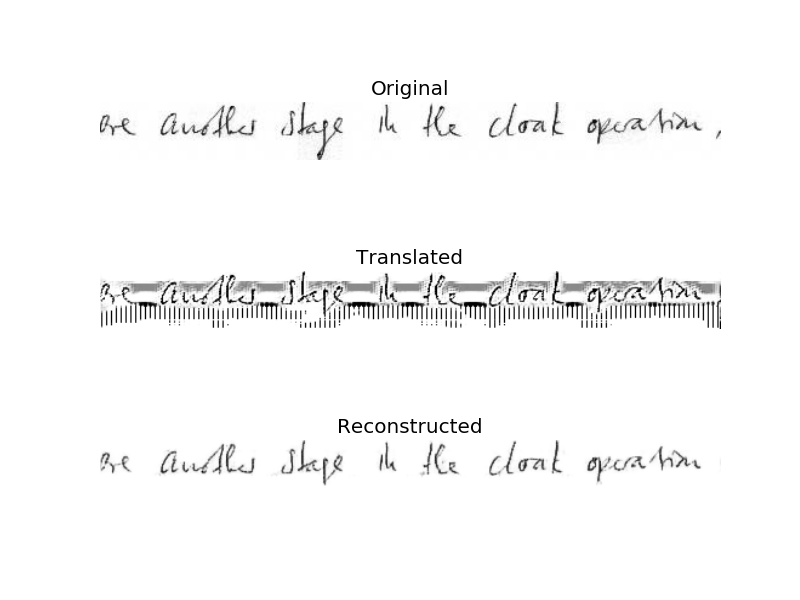 Original
are another stage in the cloak operation,
Translated
are another stage in the cloak operation
Reconstructed
are another stage in the cloak operation